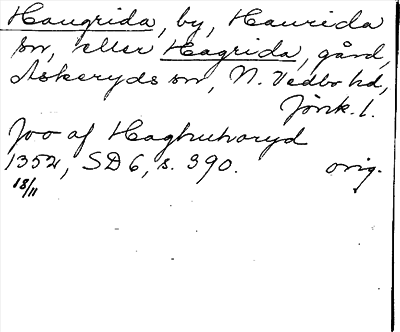 Haugrida, by, Haurida
sn, eller Hagrida, gård,
Askeryds sn, N. Vedbo hd,
Jönk. l.
Joo af Haghuhoryd
1352, SD 6, s. 390. orig.
18/11